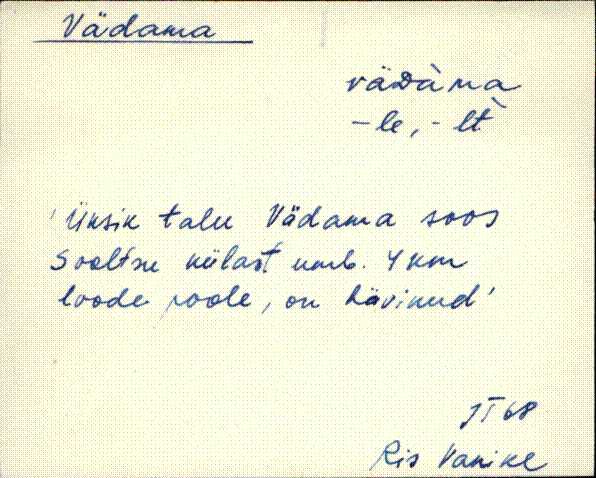 Vädama
väDàma
-le, -lt̀
'Üksik talu Vädama soos
Sooltse külast umb. 4 km
loode poole, on hävinud'
JT 68
Ris Vanike